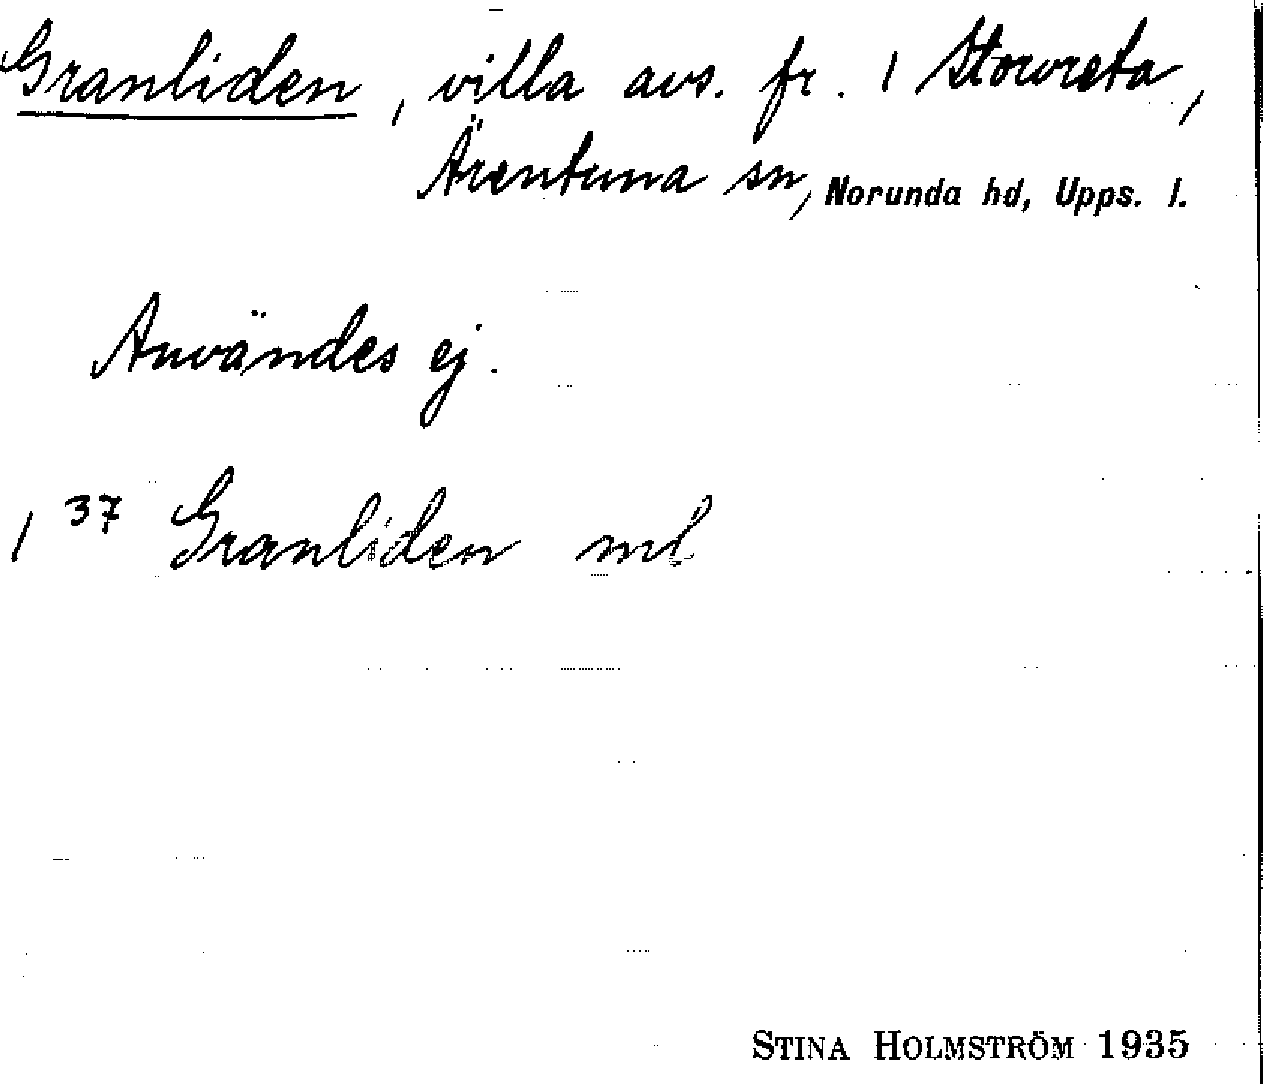 Granliden, villa avs. fr. 1 Storvreta,
Ärentuna sn, Norunda hd, Upps. l.
Användes ej.
1 37 Granliden ml
STINA HOLMSTRÖM 1935